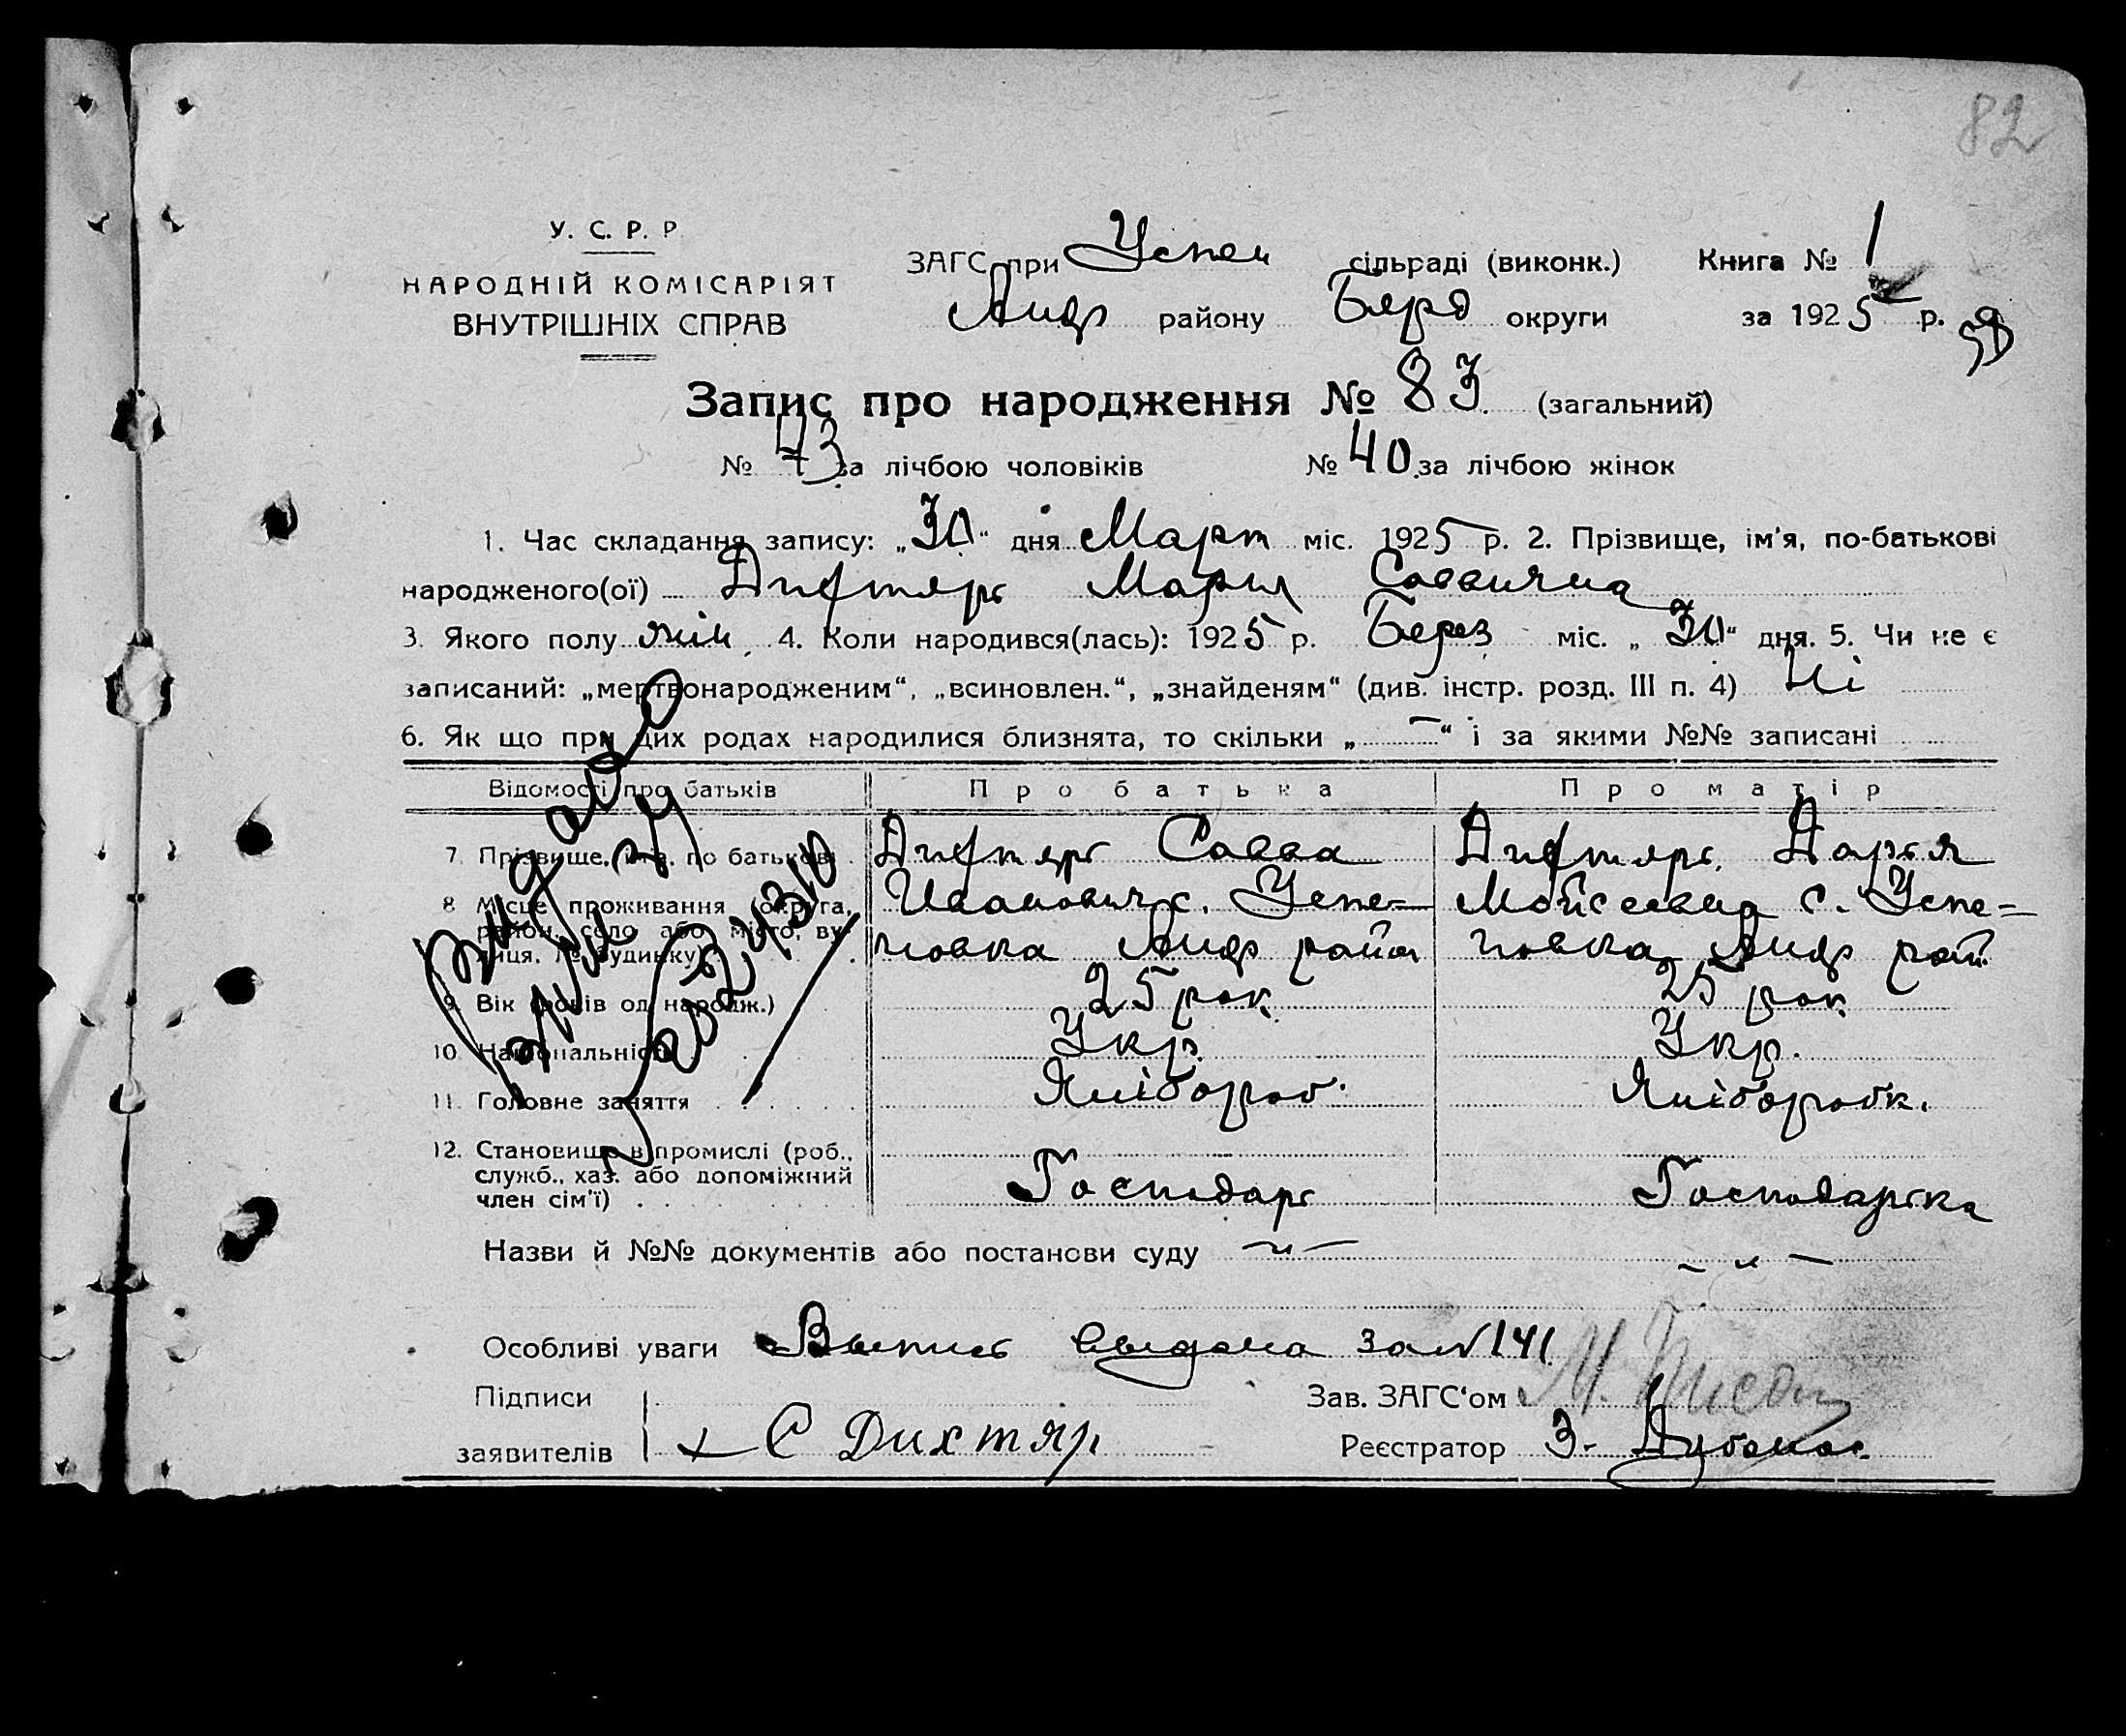 82
У. С. Р. Р
НАРОДНІЙ КОМІСАРІЯТ
ВНУТРІШНІХ СПРАВ
ЗАГС при Успен сільраді (виконк.) Книга № 1
Андр району Берд округи за 1925 р.
Запис про народження № 83 (загальний)
№ 43 за лічбою чоловіків № 40 за лічбою жінок
1. Час складання запису: „30“ дня Март міс. 1925 р. 2. Прізвище, ім'я, по-батькові
народженого(ої) Дифтярь Мария Саввична
3. Якого полу жін 4. Коли народився(лась): 1925 р. Берез міс. „30“ дня. 5. Чи не є
записаний: „мертвонародженим“, „всиновлен.“, „знайденям“ (див. інстр. розд. III п. 4) Ні
6. Як що при цих родах народилися близнята, то скільки „ — “ і за якими №№ записані
Відомості про батьків Про батька Про матір
7. Прізвище, ім'я, по батькові Дифтярь Савва Дифтярь Дарья
8. Місце проживання (округа, Иванович с. Успе= Мойсеевна с. Успе=
район, село або місто, ву-
лиця, № будинку) новка Андр район новка Андр рай.
9. Вік (років од народж.) 25 рок 25 рок
10. Національність Укр. Укр.
11. Головне заняття Хлібороб. Хліборобк.
12. Становище в промислі (роб.,
служб., хаз. або допоміжний
член сім'ї) Господарь Господарька
Назви й №№ документів або постанови суду — „ — — „ —
Особливі уваги Выпись выдана за № 141
Підписи Зав. ЗАГС'ом
заявителів + С Дихтяр Реєстратор З.